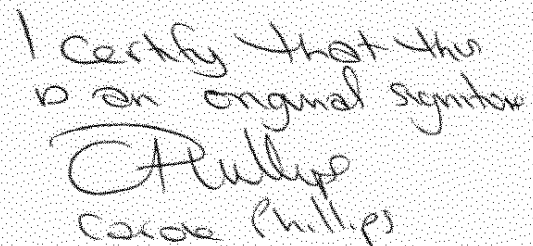 I certify that this
is an original signature
CAPhillips
Carole Phillips